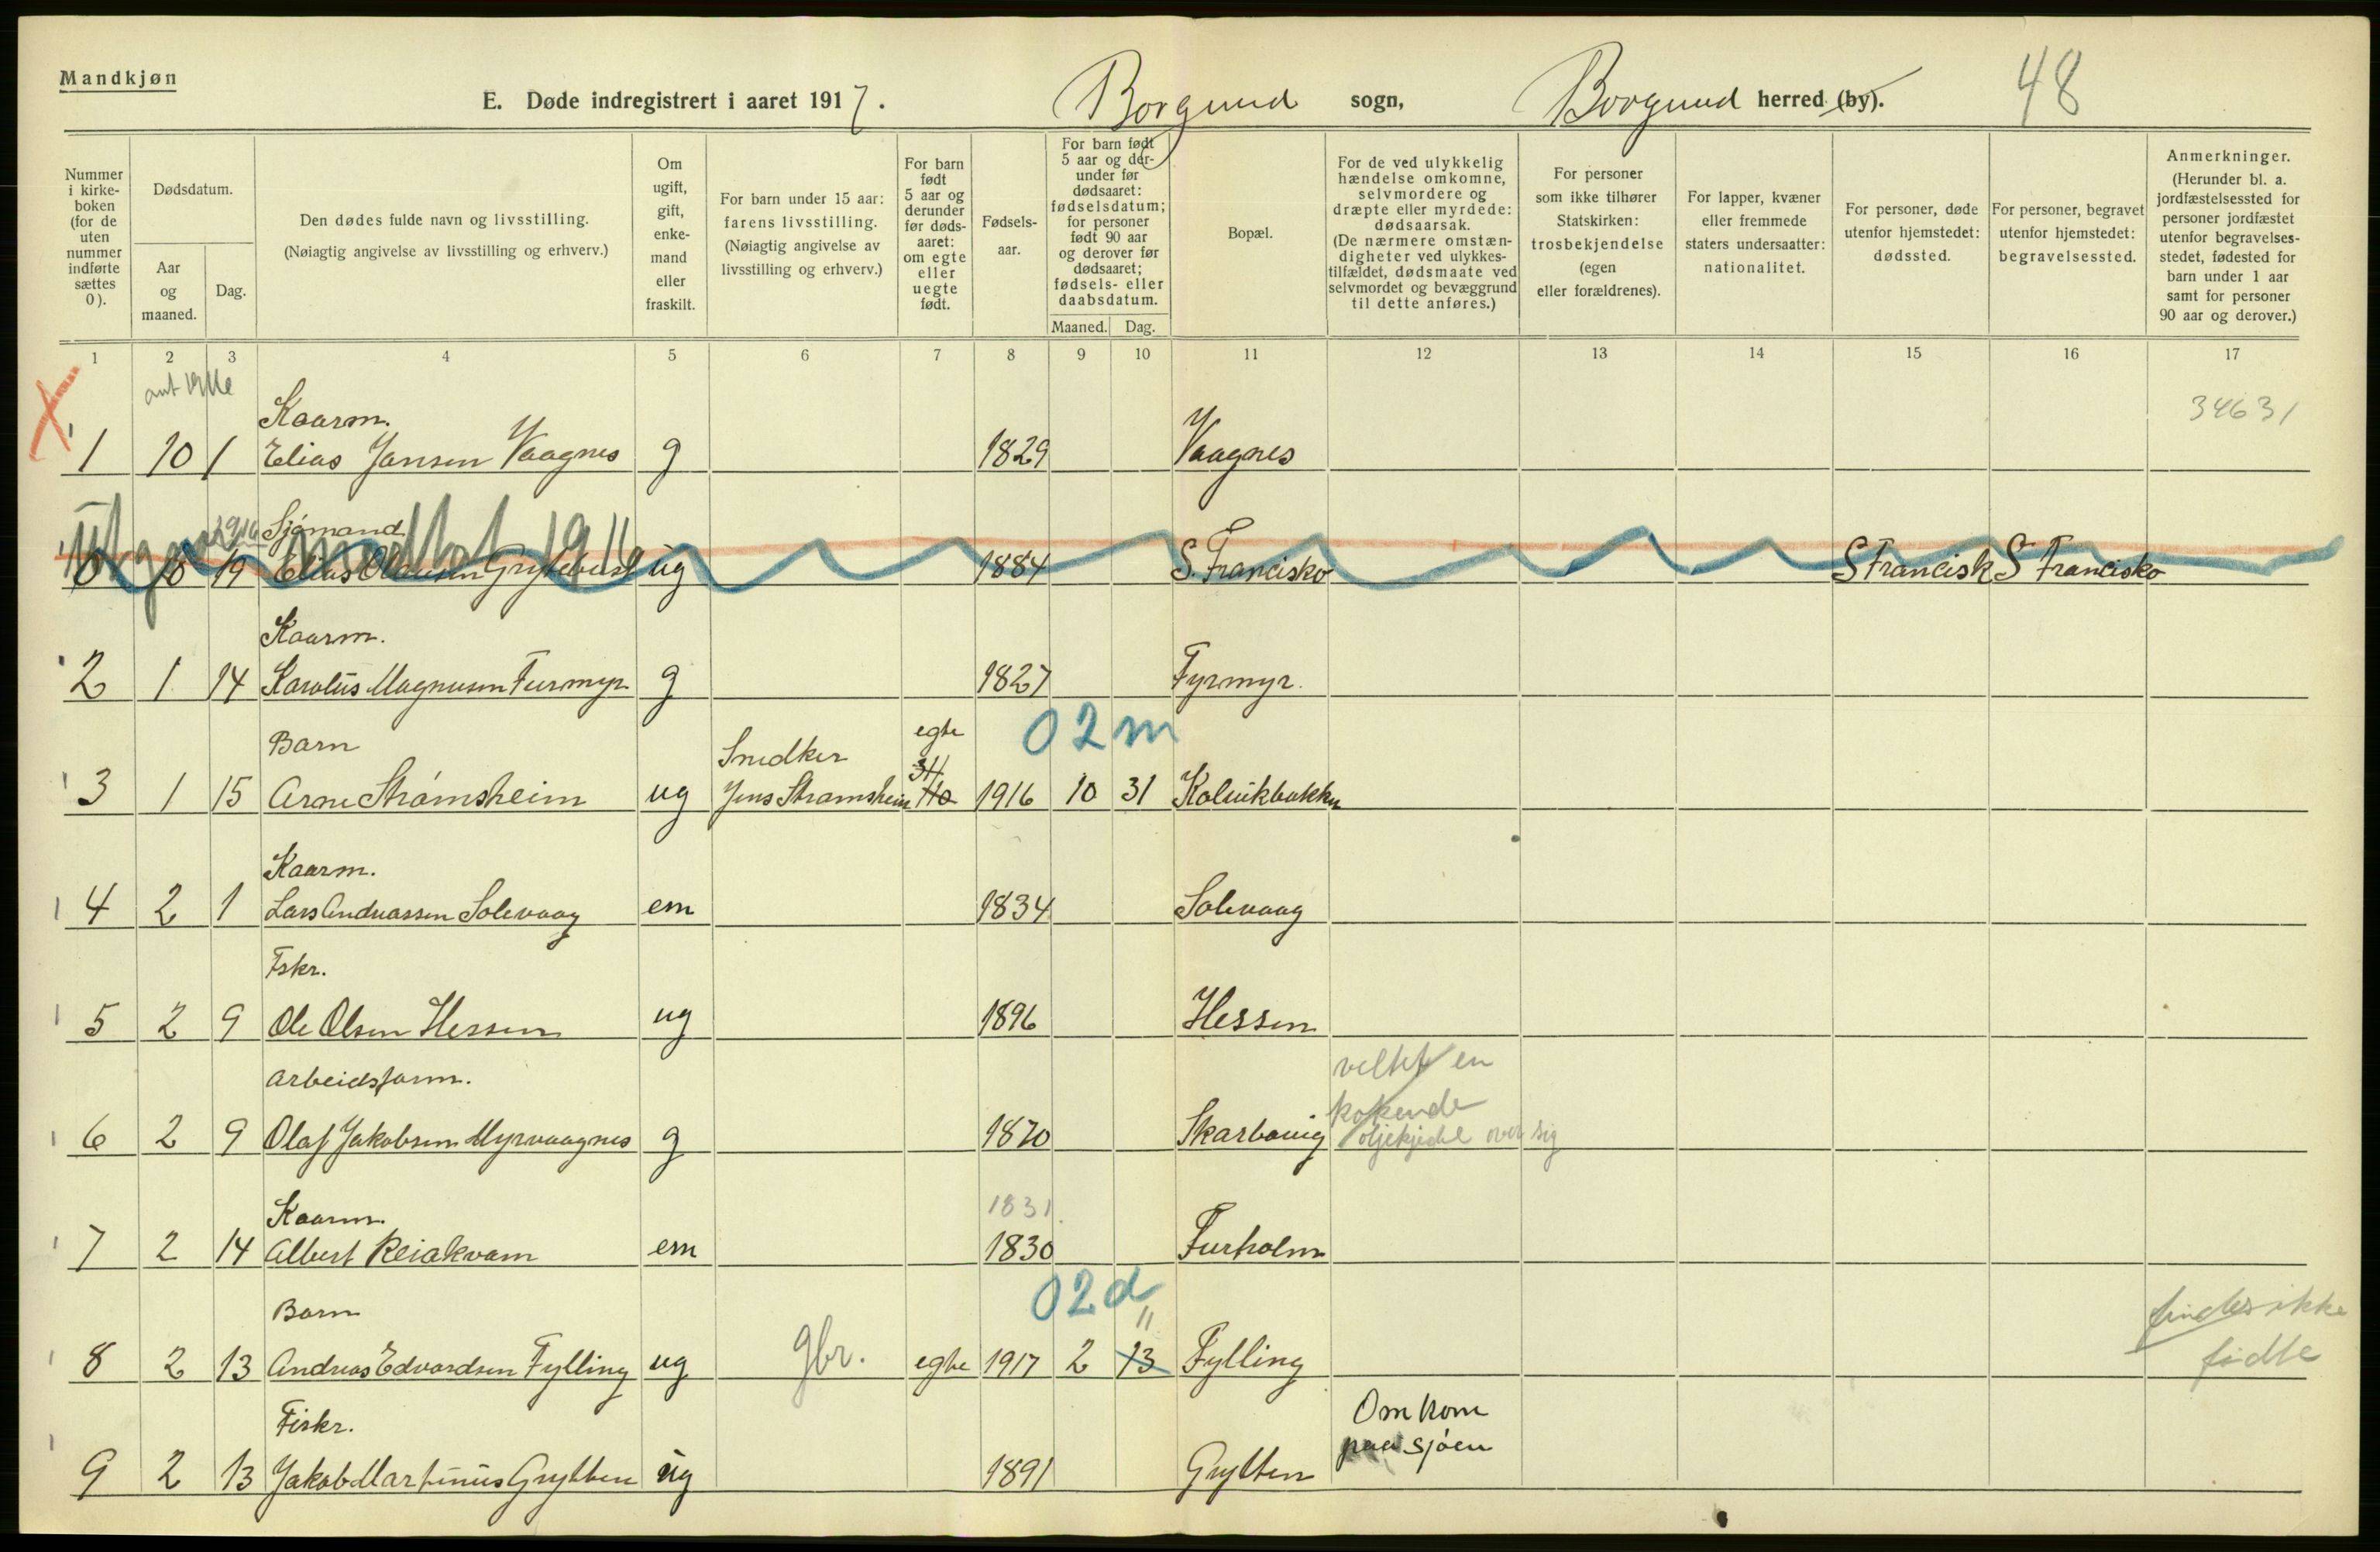 Mandkjøn
E. Døde indregistrert i aaret 1917. Borgund sogn, Borgund herred (by). 48
Nummer i kirke-boken (for de uten nummer indførte sættes 0).
Dødsdatum.
Aar og maaned.
Dag.
Den dødes fulde navn og livsstilling.
(Nøiagtig angivelse av livsstilling og erhverv.)
Om ugift, gift, enke-mand eller fraskilt.
For barn under 15 aar: farens livsstilling.
(Nøiagtig angivelse av livsstilling og erhverv.)
For barn født 5 aar og derunder før døds-aaret: om egte eller uegte født.
Fødsels-aar.
For barn født 5 aar og der-under før dødsaaret: fødselsdatum; for personer født 90 aar og derover før dødsaaret; fødsels- eller daabsdatum.
Maaned. Dag.
Bopæl.
For de ved ulykkelig hændelse omkomne, selvmordere og dræpte eller myrdede: dødsaarsak.
(De nærmere omstæn-digheter ved ulykkes-tilfældet, dødsmaate ved selvmordet og bevæggrund til dette anføres.)
For personer som ikke tilhører Statskirken: trosbekjendelse (egen eller forældrenes).
For lapper, kvæner eller fremmede staters undersaatter: nationalitet.
For personer, døde utenfor hjemstedet: dødssted.
For personer, begravet utenfor hjemstedet: begravelsessted.
Anmerkninger.
(Herunder bl. a. jordfæstelsessted for personer jordfæstet utenfor begravelses-stedet, fødested for barn under 1 aar samt for personer 90 aar og derover.)
1 2 3 4 5 6 7 8 9 10 11 12 13 14 15 16 17
Kaarm. 34631
1 10 1 Elias Jansen Vaagnes g 1829 Vaagnes
1916 Sjømand
0 10 19 Elias ug 1884 S. Francisko S Francisk S Francisko
Kaarm.
2 1 14 Karolus Magnusen Furmyr g 1827 Fyrmyr.
Barn Snedker egte 02m
3 1 15 Arne Strømsheim ug Jens Strømsheim 31/10 1916 10 31 Kolvikbakken
Kaarm.
4 2 1 Lars Andreassen Solevaag em 1834 Solevaag
Fskr.
5 2 9 Ole Olsen Hessen ug 1896 Hessen
Arbeidsform. veltet en kokende
6 2 9 Olaf Jakobsen Myrvaagnes g 1870 Skarbøvig oljekjedel over sig
Kaarm. 1831
7 2 14 Albert Reiakvam em 1830 Furholm
Barn 02d 11 findes ikke
8 2 13 Andreas Edvardsen Fylling ug gbr. egte 1917 2 13 Fylling fødte
Fiskr. Omkom paa sjøen
9 2 13 Jakob Martinus Grytten ug 1891 Grytten